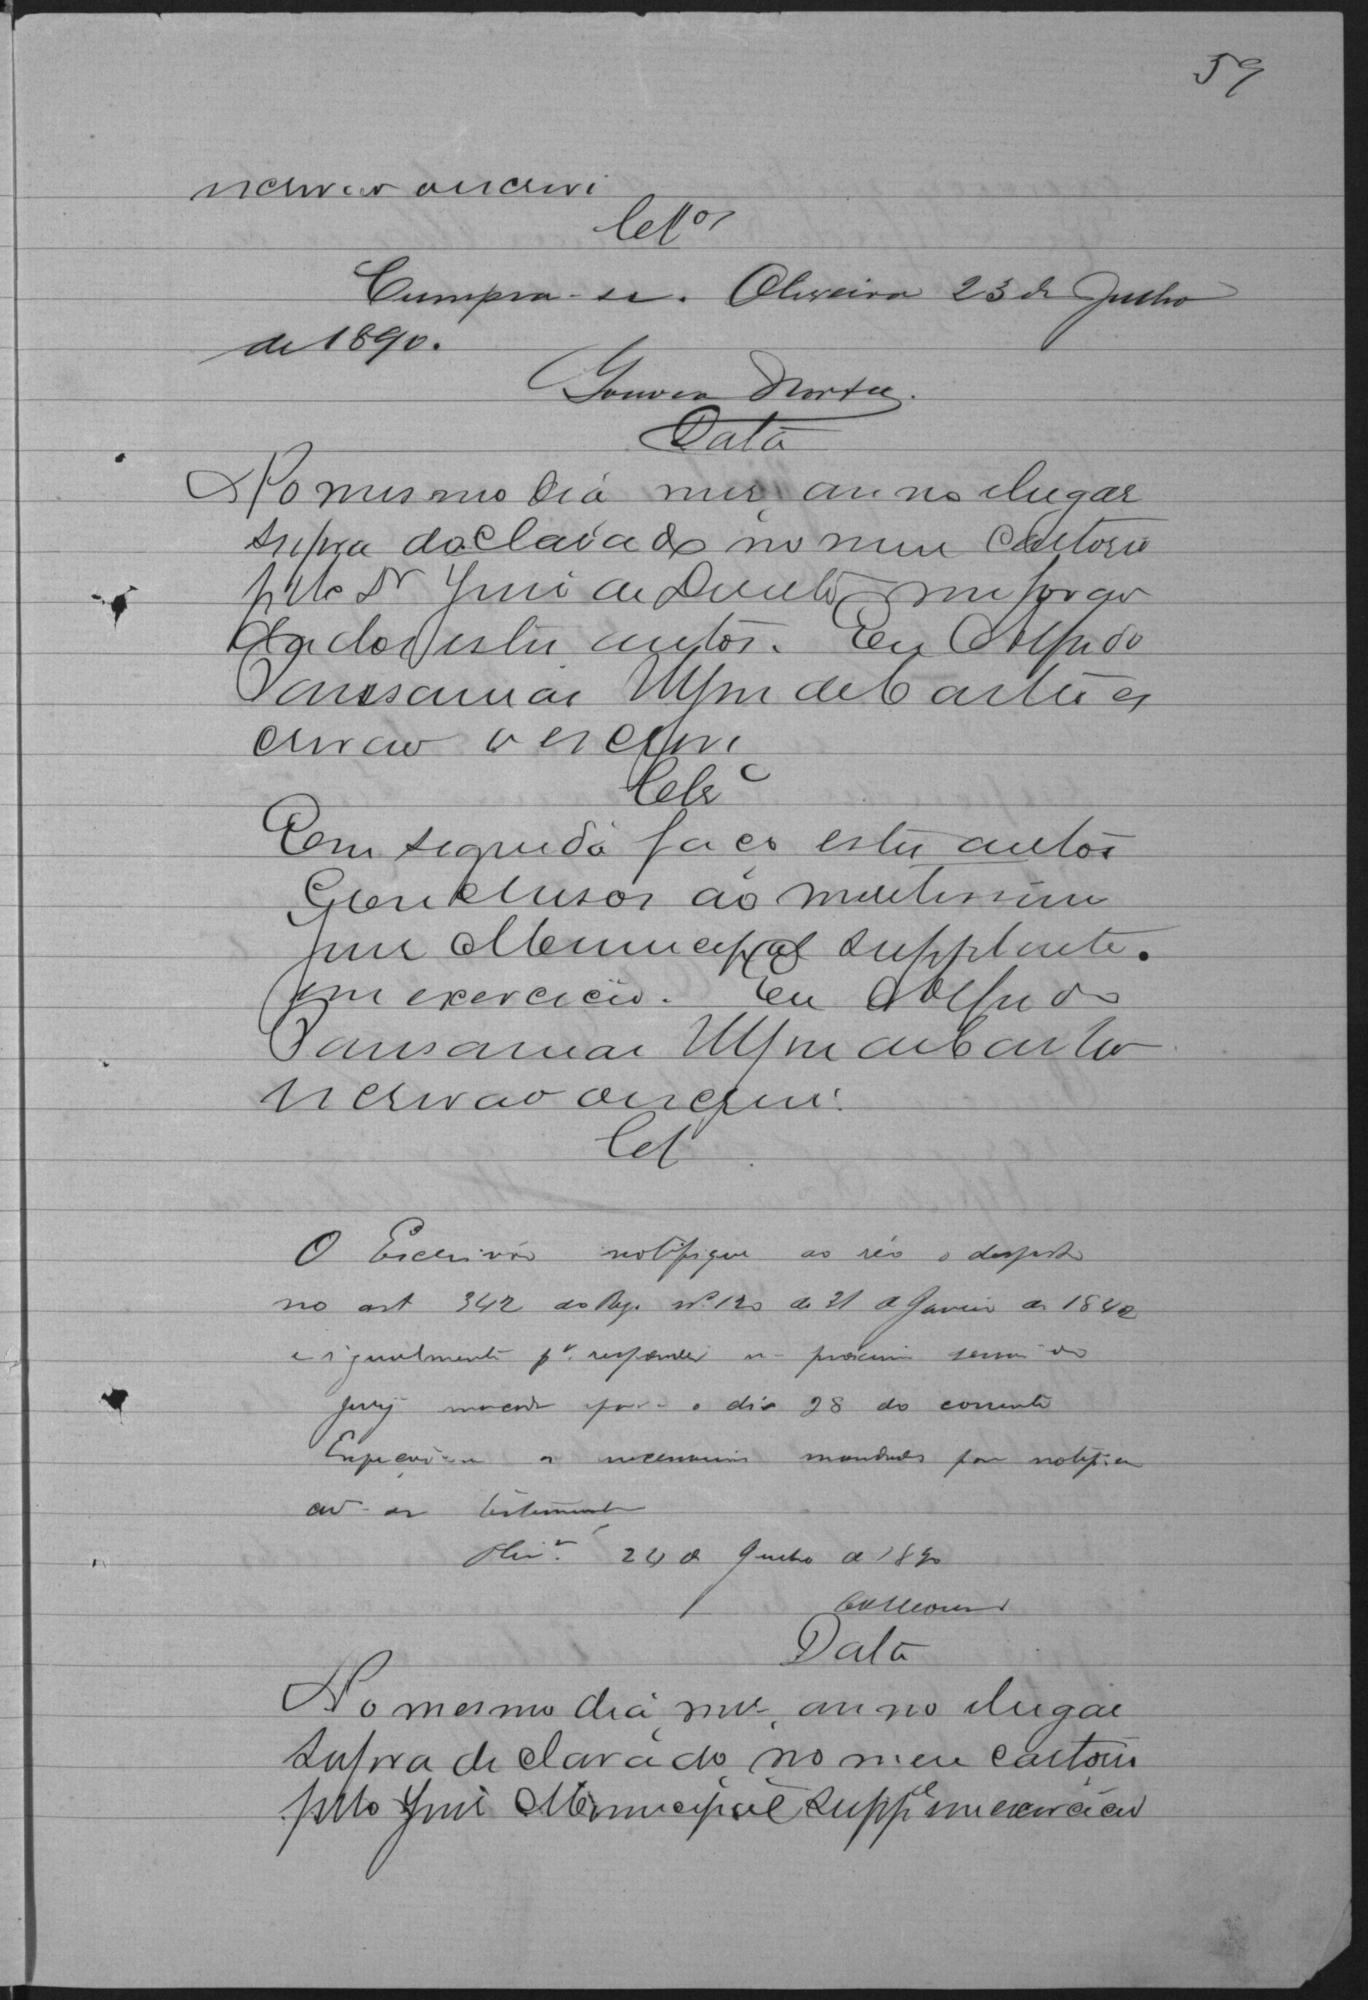 59
escrivão o escrevi
Clsos
Cumpra-se. Oliveira 23 de Julho
de 1890.
Gouvea Horta
Data
No mesmo dia, mes, anno e lugar
supra declarado no meu cartorio
pelo Dr Juiz de Direito me forão
dados estes autos. Eu Alfredo
de Castro es
crivão o escrevi
Clsc
Em seguida faço estes autos
Conclusos ao meritissimo
Juiz Municipal Supplente.
em exercicio. Eu Alfredo
de Castro
escrivão o escrevi.
Cls
O Escrivão notifique ao réo o disposto
no art 342 do Reg. nº 120 de 31 de Janeiro de 1842
e igualmente pa. responder na proxima sessão do
jury marcada para o dia 28 do corrente
Expeção-se os necessarios mandados para notifica
ção das testemunhas
Olivra. 24 de Julho de 1890
Data
No mesmo dia, mes, anno e lugar
supra declarado, no meu cartorio
pelo Juiz Municipal Suppe em exercicio